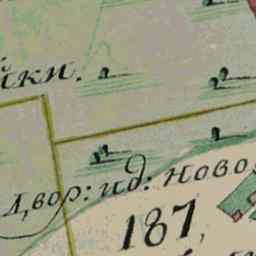 йки.
Двор: ид: ново
187,